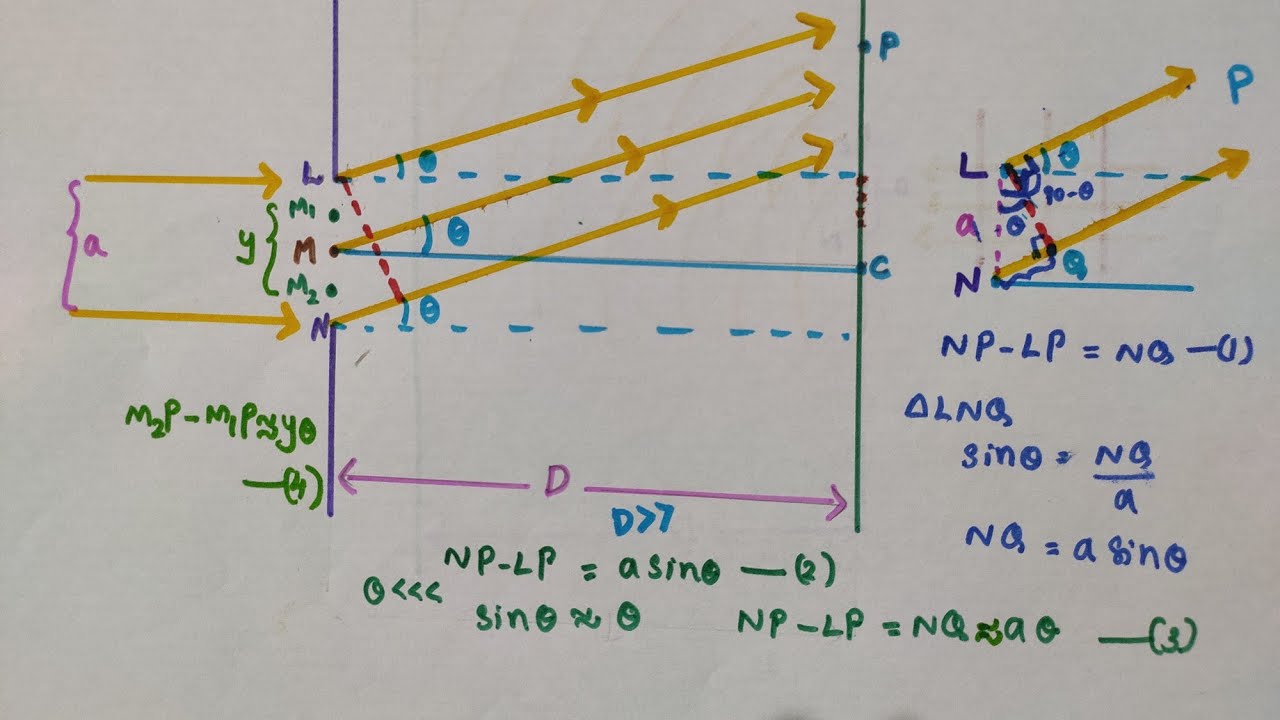 P
L
θ
M₁
y
M
θ
C
a
M₂
N
θ
M₂P-M₁P≈yθ
—(4)
D
D>>
NP-LP = a sinθ —(2)
θ<<<
sinθ ≈ θ
NP-LP = NQ ≈ aθ —(3)
P
L
θ
90-θ
a
θ
N
Q
NP-LP = NQ —(1)
ΔLNQ
sinθ = NQ
a
NQ = a sinθ